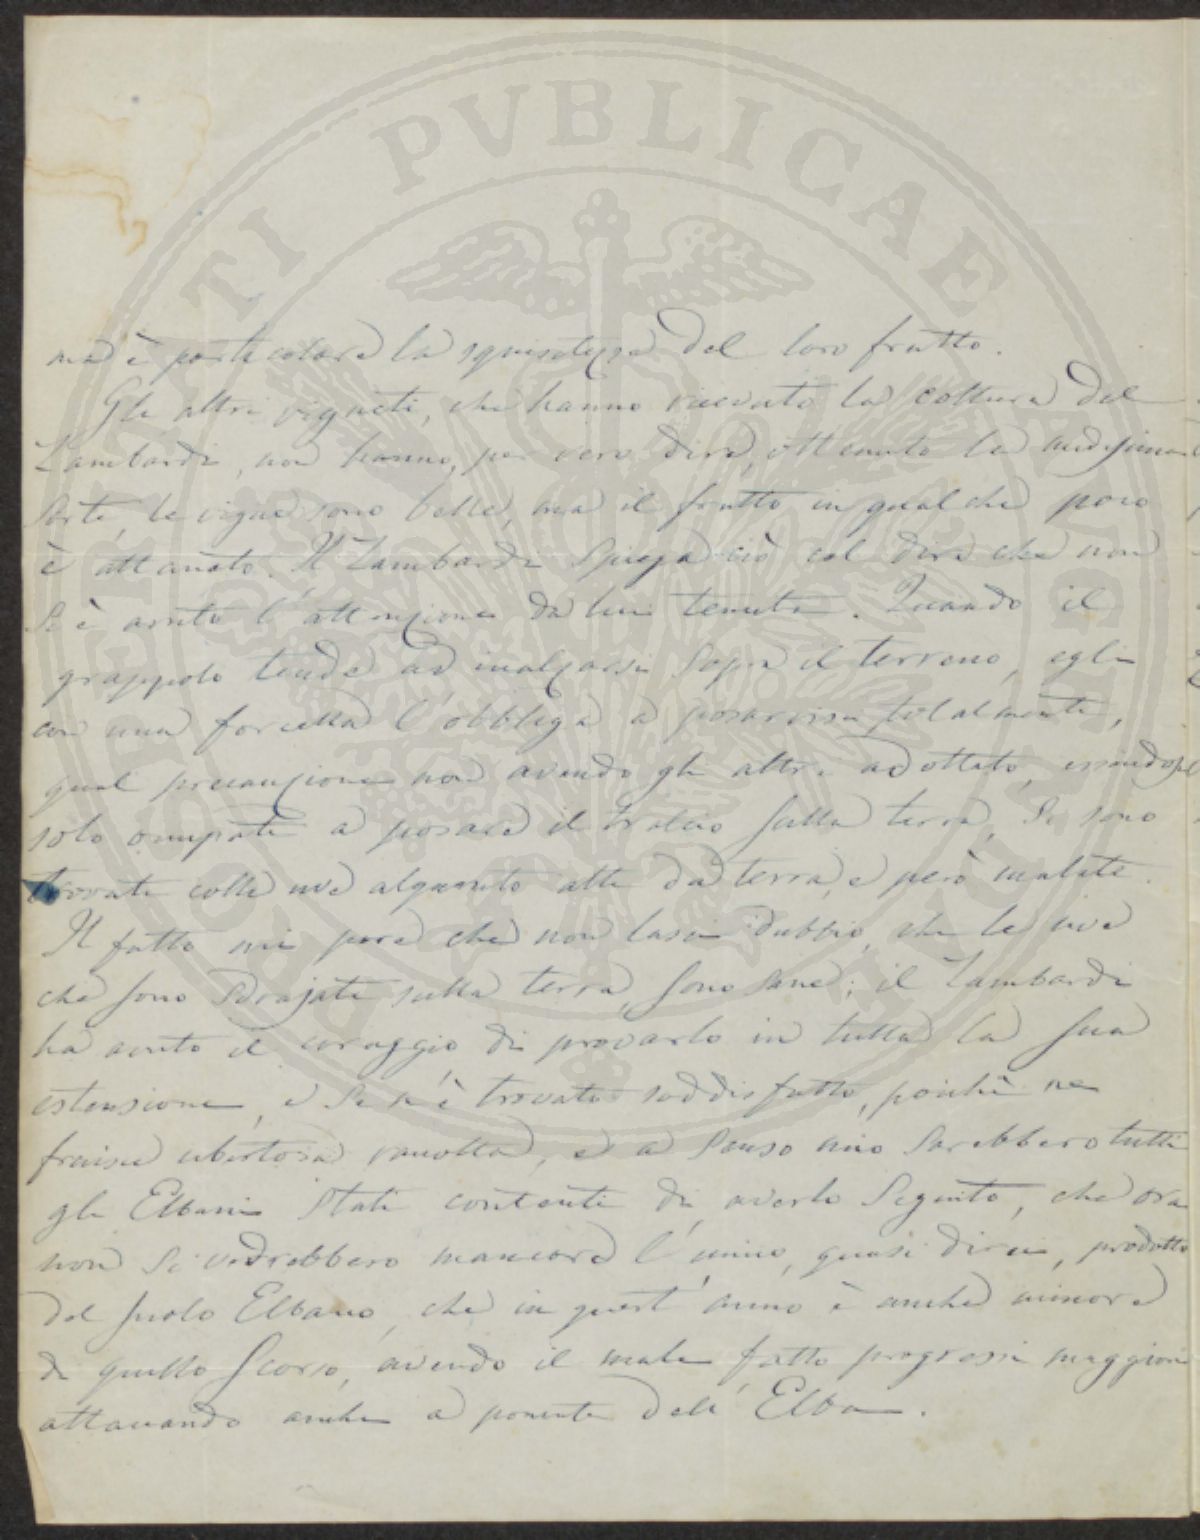 ma è particolare la squisitezza del loro frutto.
Gli altri vigneti, che hanno ricevuto la coltura del
Lambardi, non hanno, per vero dire, ottenuto la medesima
sorte, le vigne sono belle, ma il frutto in qualche poco
è attaccato. Il Lambardi spiega ciò col dire che non
si è avuto l'attenzione da lui tenuta. Quando il
grappolo tende ad inalzarsi sopra il terreno, egli
con una forcella l'obbliga a posarvisi totalmente,
qual precauzione non avendo gli altri adottato, essendosi
solo occupati a posare il tralcio sulla terra, si sono
trovati colle uve alquanto alte da terra, e però malate.
Il fatto mi pare che non lasci dubbio, che le uve
che sono sdrajate sulla terra, sono sane; il Lambardi
ha avuto il coraggio di provarlo in tutta la sua
estensione, e se n'è trovato soddisfatto, poichè ne
fruisce ubertosa raccolta, e a senso mio sarebbero tutti
gli Elbani stati contenti di averlo seguito, che ora
non si vedrebbero mancare l'unico, quasi direi, prodotto
del suolo Elbano, che in quest'anno è anche minore
di quello scorso, avendo il male fatto progressi maggiori
attaccando anche a ponente dell'Elba.
PVBLICAE